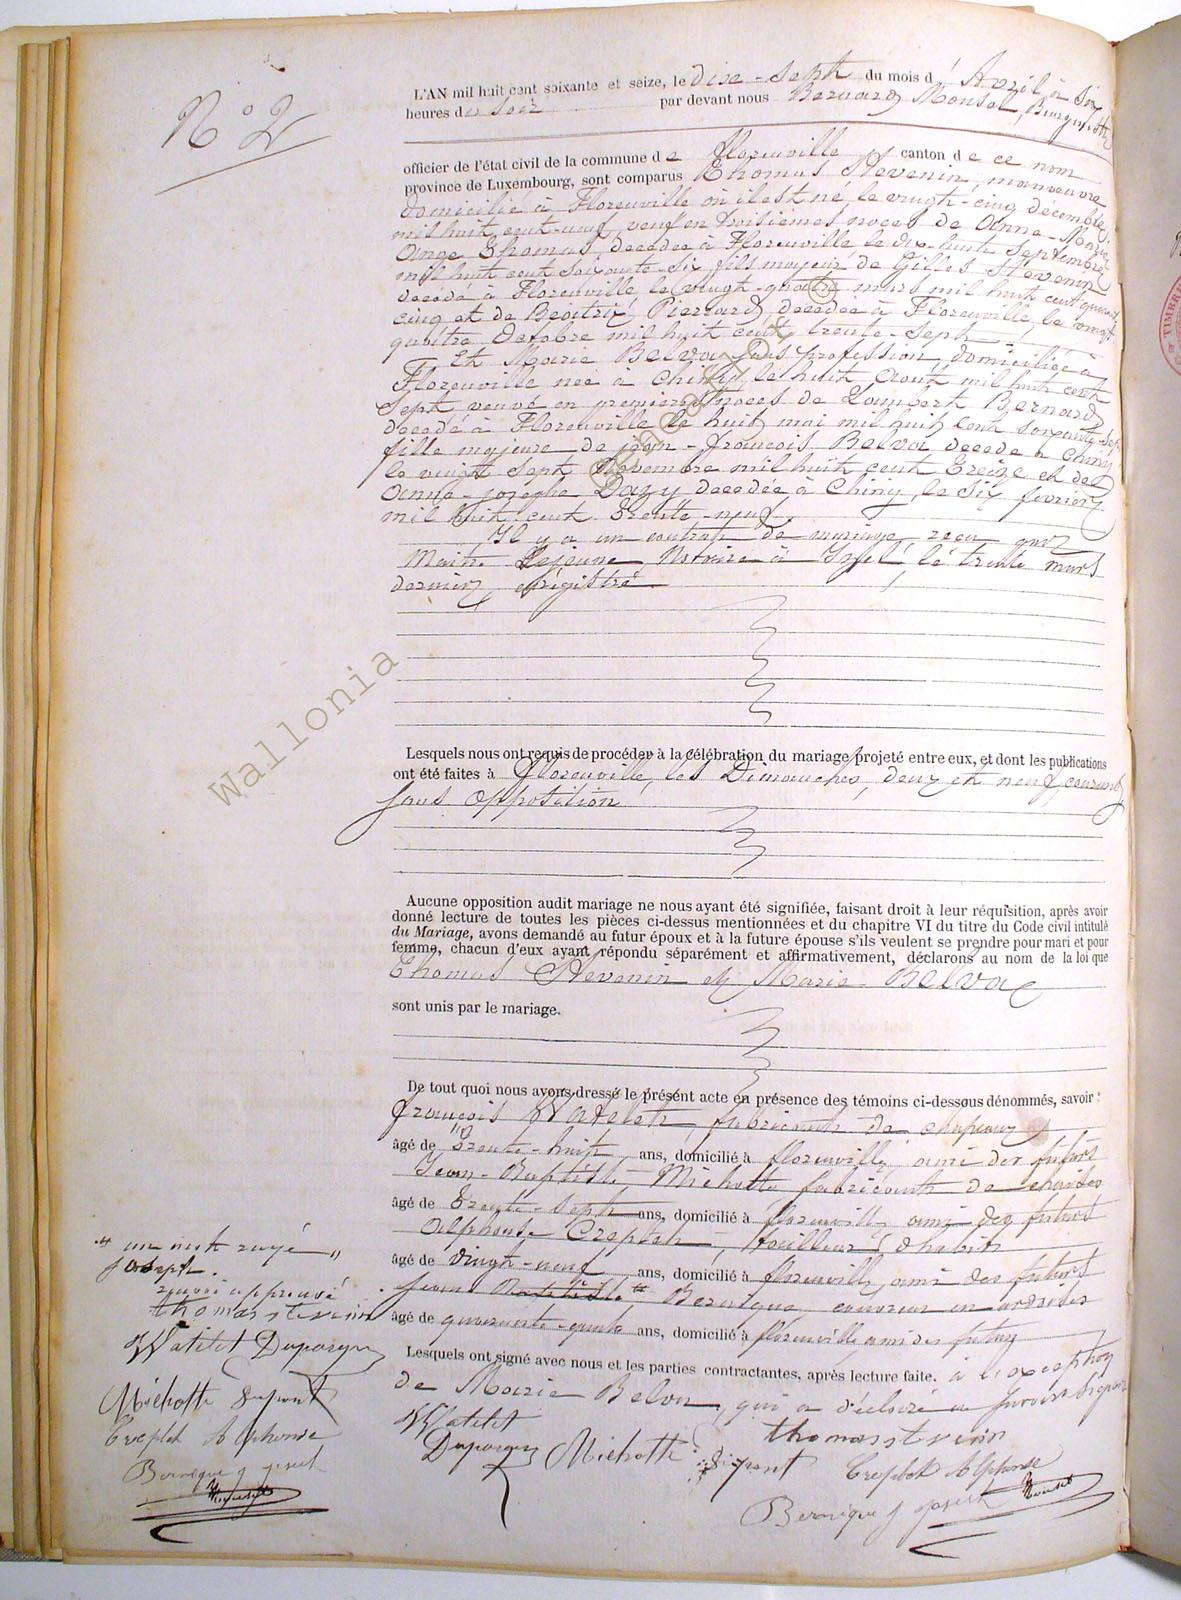 N° 2
L'AN mil huit cent soixante et seize, le dix-sept du mois d'Avril à six
heures du soir par devant nous Bernard Monsel, Bourgmestre
officier de l'état civil de la commune de Florenville canton de ce nom
province de Luxembourg, sont comparus Thomas Stevenin, manoeuvre
domicilié à Florenville où il est né, le vingt-cinq décembre
mil huit cent-neuf, veuf en troisièmes noces de Anne-Marie
Ange Thomas, décédée à Florenville le dix-huit septembre
mil huit cent soixante-six, fils majeur de Gilles Stevenin
décédé à Florenville le vingt-quatre mars mil huit cent quarante
cinq et de Beatrix Pierrard décédée à Florenville le vingt
quatre Octobre mil huit cent trente-sept
Et Marie Belva sans profession, domiciliée à
Florenville née à Chiny, le huit Août mil huit cent
sept veuve en premières noces de Lambert Bernard
décédé à Florenville le huit mai mil huit cent soixante-sept
fille majeure de jean-françois Belva décédé à Chiny
le vingt sept Novembre mil huit cent treize et de
Anne-josephe Dazy décédée à Chiny, le six février
mil huit cent trente-neuf.
Il y a un contrat de mariage reçu par
Maître Lejeune Notaire à Izel le trente mars
dernier, enrégistré
Wallonia
Lesquels nous ont requis de procéder à la célébration du mariage projeté entre eux, et dont les publications
ont été faites à Florenville, les Dimanches, deux et neuf courant
sans opposition
Aucune opposition audit mariage ne nous ayant été signifiée, faisant droit à leur réquisition, après avoir
donné lecture de toutes les pièces ci-dessus mentionnées et du chapitre VI du titre du Code civil intitulé
du Mariage, avons demandé au futur époux et à la future épouse s'ils veulent se prendre pour mari et pour
femme, chacun d'eux ayant répondu séparément et affirmativement, déclarons au nom de la loi que
Thomas Stevenin et Marie Belva
sont unis par le mariage.
De tout quoi nous avons dressé le présent acte en présence des témoins ci-dessous dénommés, savoir :
françois Watelet, fabricant de chapeaux
âgé de trente-huit ans, domicilié à florenville, ami des futurs
Jean-Baptiste Michotte fabricant de chaises
âgé de trente-sept ans, domicilié à florenville ami des futurs
Alphonse Creplet, tailleur d'habits
âgé de vingt-neuf ans, domicilié à florenville, ami des futurs
jean Baptiste Bernique, couvreur en ardoises
âgé de quarante- ans, domicilié à florenville, ami des futurs
Lesquels ont signé avec nous et les parties contractantes, après lecture faite. à l'exception
de Marie Belva, qui a déclaré ne savoir signer
un mot rayé
joseph.
renvoi approuvé
thomas stevenin
Watelet
Michotte
Creplet Alphonse
Bernique joseph
Monsel
Watelet
thomas stevenin
Michotte Creplet Alphonse
Bernique joseph Monsel